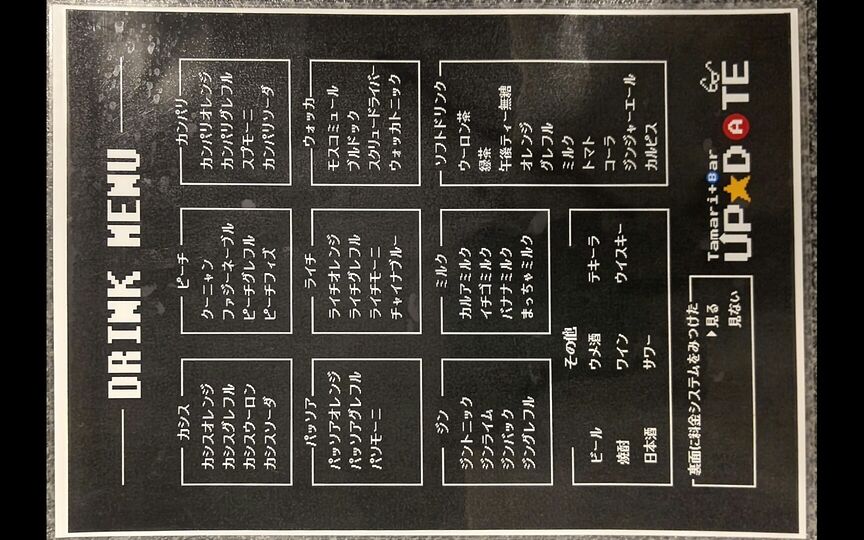 DRINK MENU
カシス
カシスオレンジ
カシスグレフル
カシスウーロン
カシスソーダ
ピーチ
クーニャン
ファジーネーブル
ピーチグレフル
ピーチフィズ
カンパリ
カンパリオレンジ
カンパリグレフル
スプモーニ
カンパリソーダ
パッソア
パッソアオレンジ
パッソアグレフル
パソモーニ
ライチ
ライチオレンジ
ライチグレフル
ライチモーニ
チャイナブルー
ウォッカ
モスコミュール
ブルドック
スクリュードライバー
ウォッカトニック
ジン
ジントニック
ジンライム
ジンバック
ジングレフル
ミルク
カルアミルク
イチゴミルク
バナナミルク
まっちゃミルク
ソフトドリンク
ウーロン茶
緑茶
午後ティー無糖
オレンジ
グレフル
ミルク
トマト
コーラ
ジンジャーエール
カルピス
その他
ビール ウメ酒 テキーラ
焼酎 ワイン ウイスキー
日本酒 サワー
裏面に料金システムをみつけた
▶見る
見ない
Tamari+Bar
UP★DATE